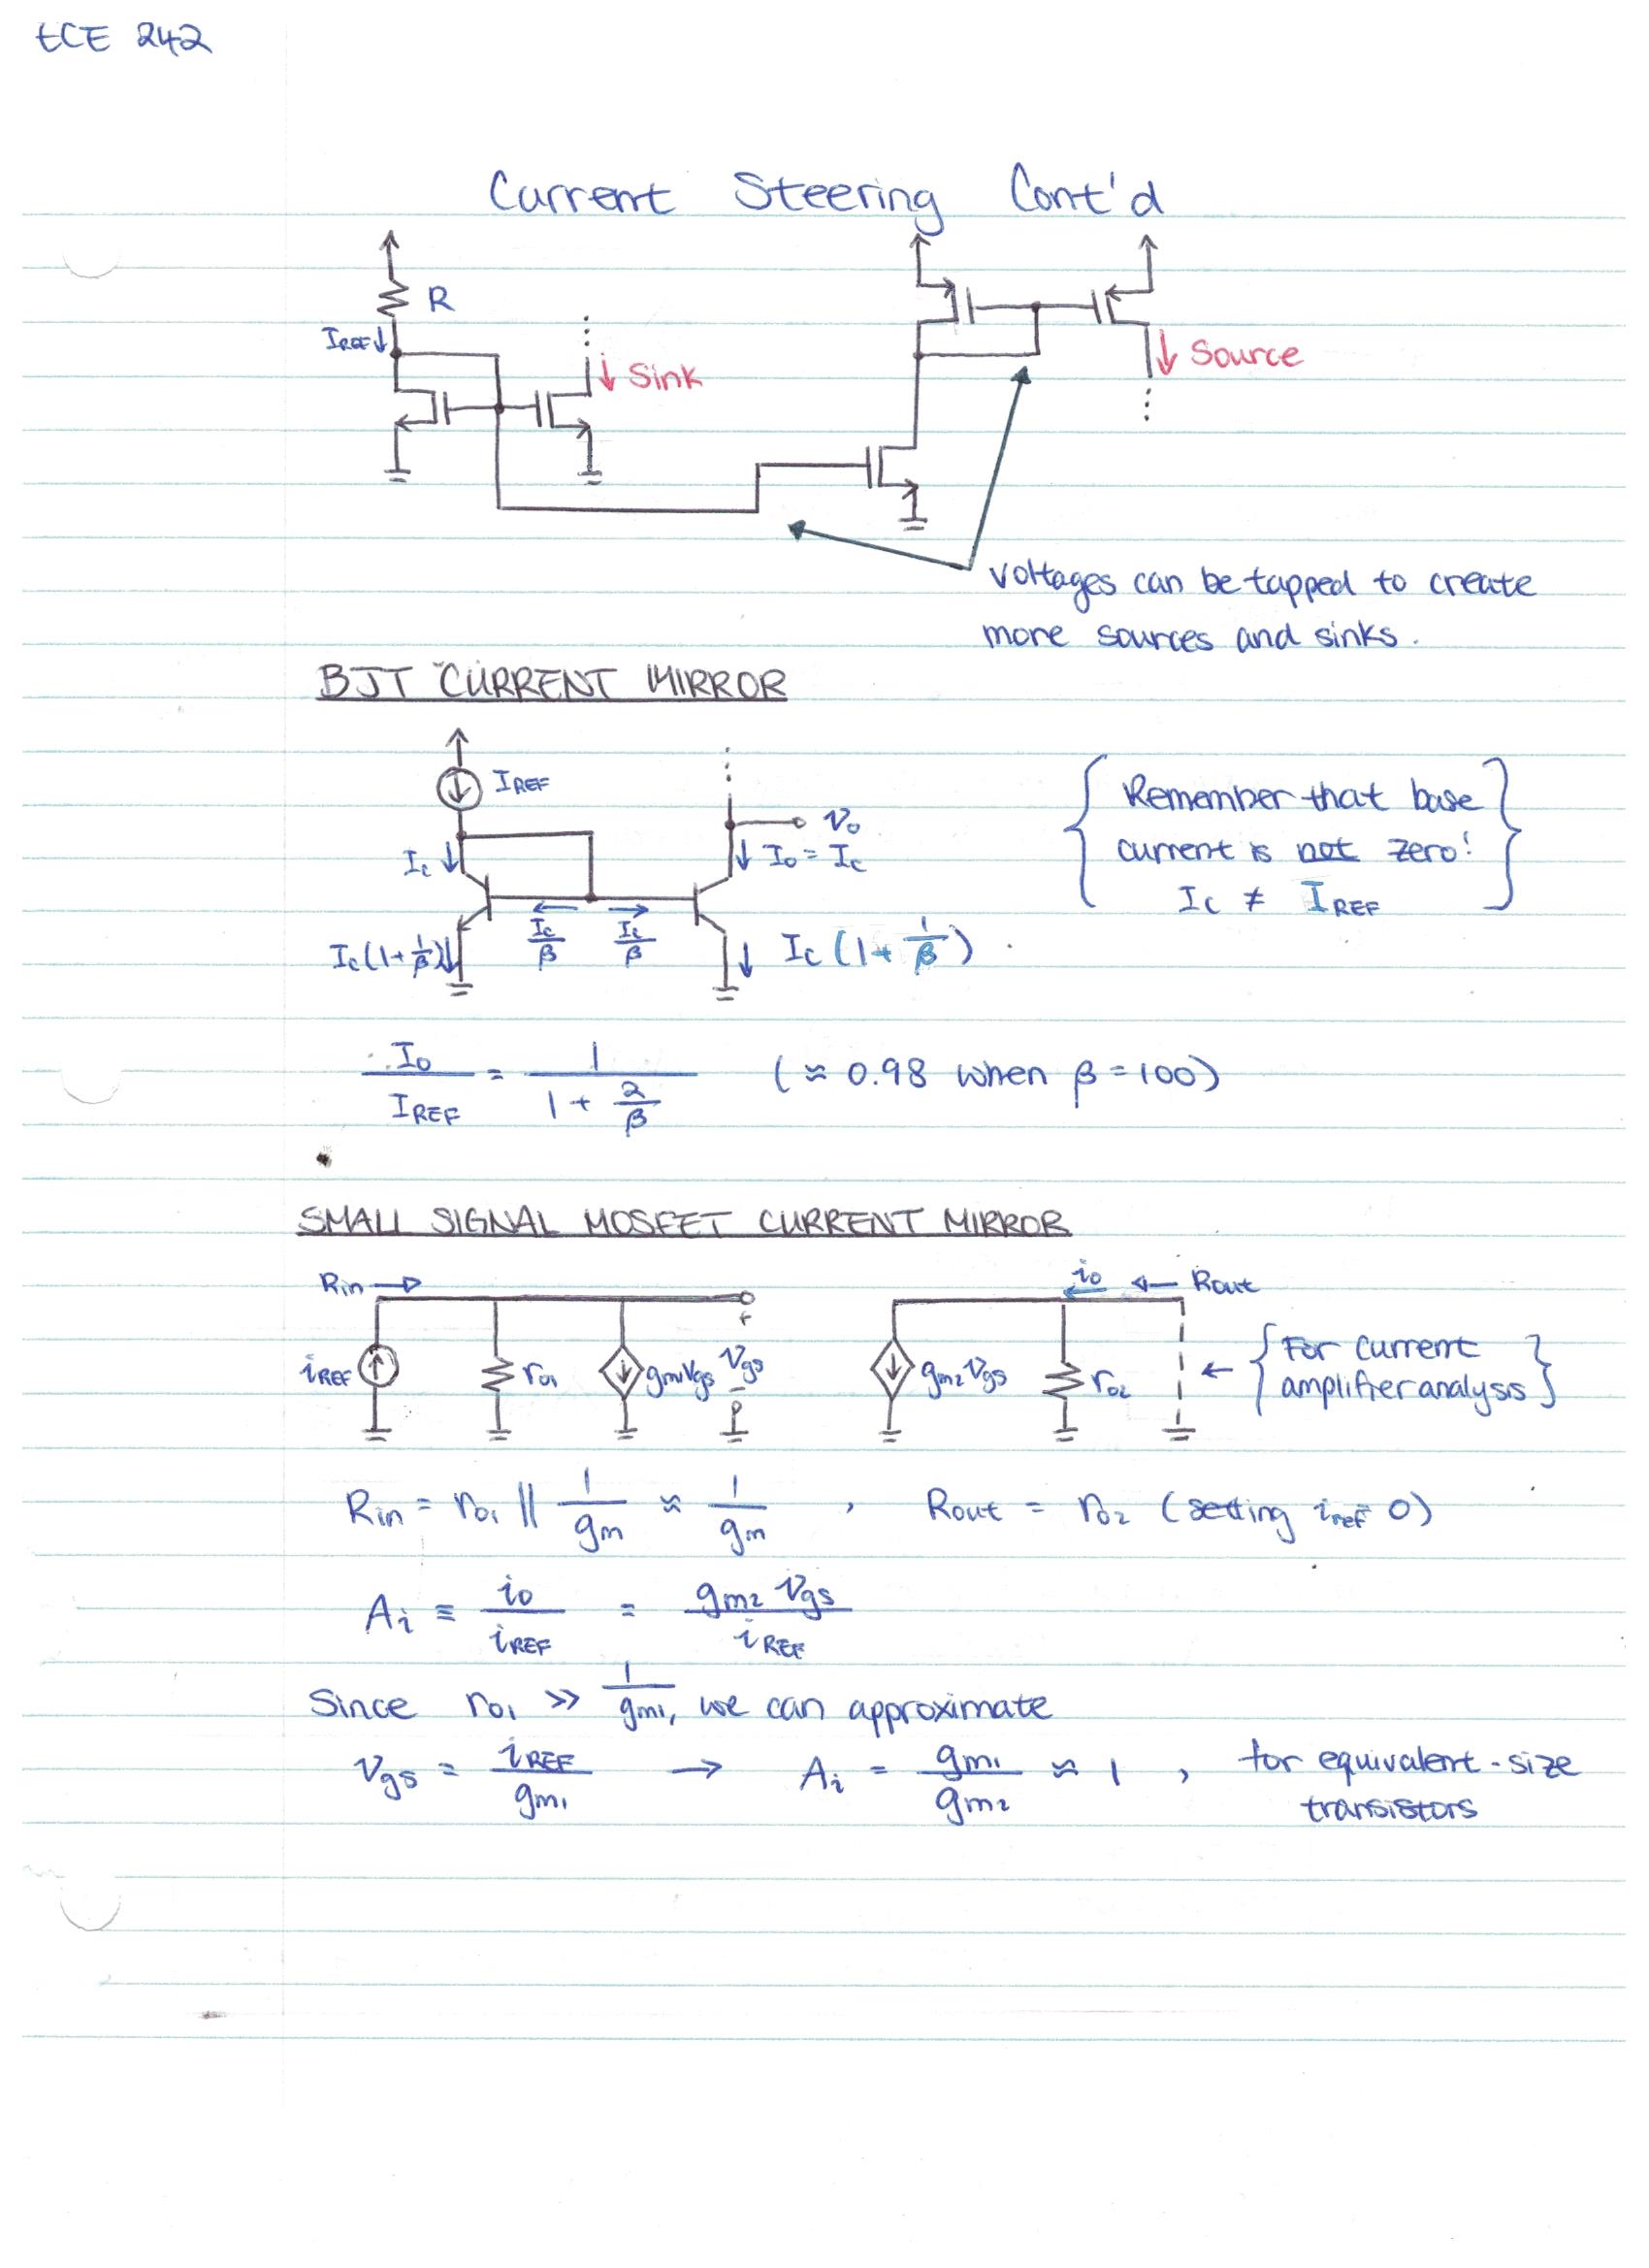 ECE 242
Current Steering Cont'd
R
IREF ↓
↓ Sink
↓ Source
Voltages can be tapped to create
more sources and sinks.
BJT CURRENT MIRROR
IREF
Vo
Ic ↓
↓ Io = Ic
{ Remember that base
current is not zero!
Ic ≠ IREF }
Ic/β Ic/β
Ic(1+1/β)↓
↓ Ic(1+1/β)
Io/IREF = 1/(1+2/β) (≈ 0.98 when β=100)
SMALL SIGNAL MOSFET CURRENT MIRROR
Rin →
io ← Rout
iREF ro1 gm1vgs + vgs - gm2vgs ro2 ← { For current
amplifier analysis }
Rin = ro1 || 1/gm ≈ 1/gm , Rout = ro2 (setting iref = 0)
Ai ≡ io/iREF = gm2 vgs/iREF
Since ro1 >> 1/gm1, we can approximate
vgs = iREF/gm1 → Ai = gm1/gm2 ≈ 1 , for equivalent-size
transistors